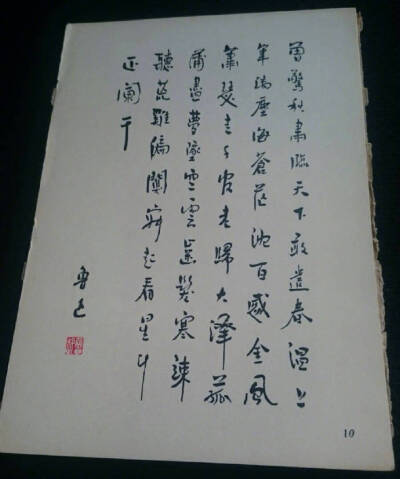 曾驚秋肅臨天下敢遣春溫上
筆端塵海蒼茫沈百感金風
蕭瑟走千官老歸大澤菰
蒲盡夢墜空雲齒髮寒竦
聽荒雞偏闃寂起看星斗
正闌干
魯迅
10